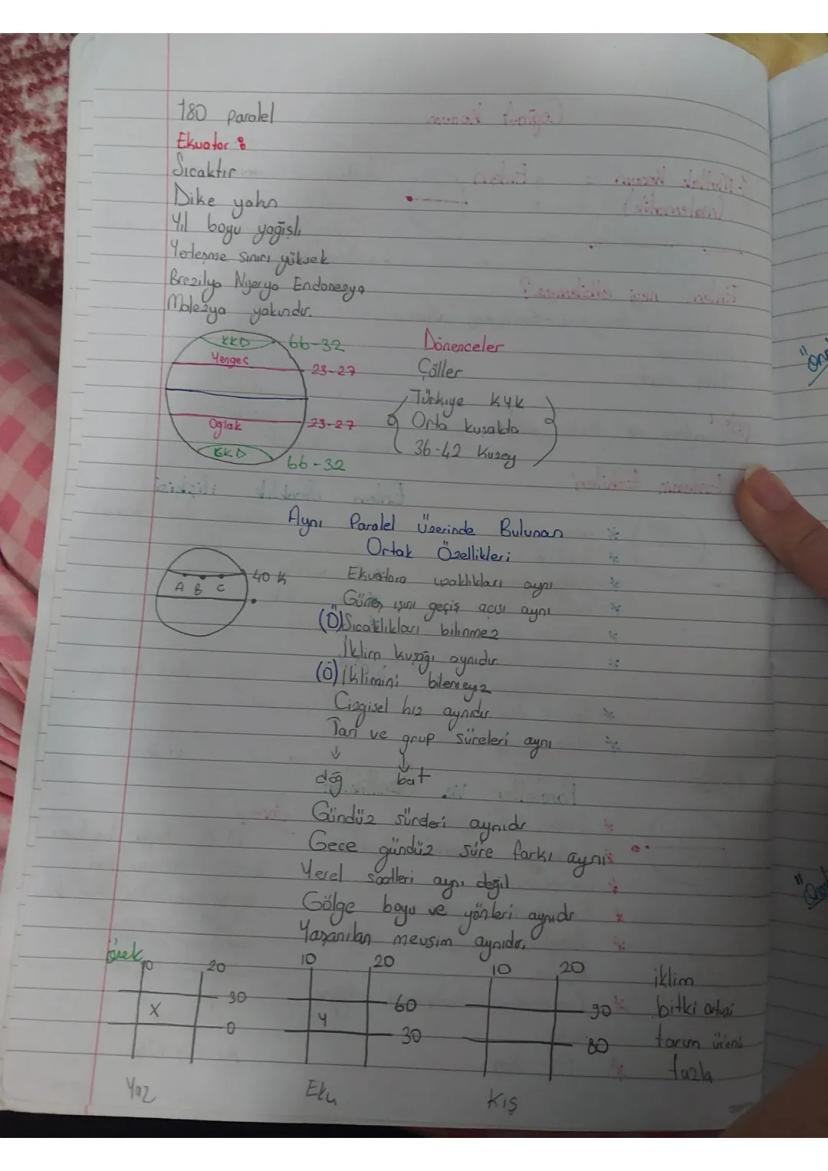 180 paralel
Ekvator :
Sıcaktır
Dike yakın
Yıl boyu yağışlı
Yerleşme sınırı yüksek
Brezilya Nijerya Endonezya
Malezya yakındır.
KKD 66-32
Yengeç 23-27
Oğlak 23-27
GKD 66-32
Dönenceler
Çöller
Türkiye KYK
Orta kuşakta
36-42 Kuzey
Aynı Paralel Üzerinde Bulunan
Ortak Özellikleri
A B C 40 K
Ekvatora uzaklıkları aynı
Güneş ışını geçiş açısı aynı
(Ö) Sıcaklıkları bilinmez
İklim kuşağı aynıdır
(Ö) İklimini bilemeyiz
Çizgisel hız aynıdır
Tan ve grup süreleri aynı
↓ ↓
doğ bat
Gündüz süreleri aynıdır
Gece gündüz süre farkı aynı
Yerel saatleri aynı değil
Gölge boyu ve yönleri aynıdır
Yaşanılan mevsim aynıdır.
Örnek
10 20
X 30
0
Yaz
10 20
60
Y 30
10 20
90
80
Kış
iklim
bitki
tarım
fazla